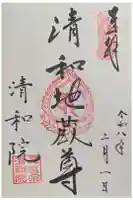 奉拝
令和八年
二月一日
清和地蔵尊
清和院